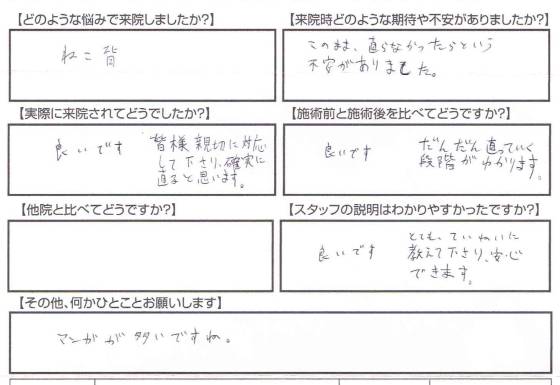 【どのような悩みで来院しましたか?】
ねこ背
【来院時どのような期待や不安がありましたか?】
このまま、直らなかったらという
不安がありました。
【実際に来院されてどうでしたか?】
良いです
皆様親切に対応
して下さり、確実に
直ると思います。
【施術前と施術後を比べてどうですか?】
良いです
だんだん直っていく
段階がわかります。
【他院と比べてどうですか?】
【スタッフの説明はわかりやすかったですか?】
良いです
とても、ていねいに
教えて下さり、安心
できます。
【その他、何かひとことお願いします】
マンガが多いですね。